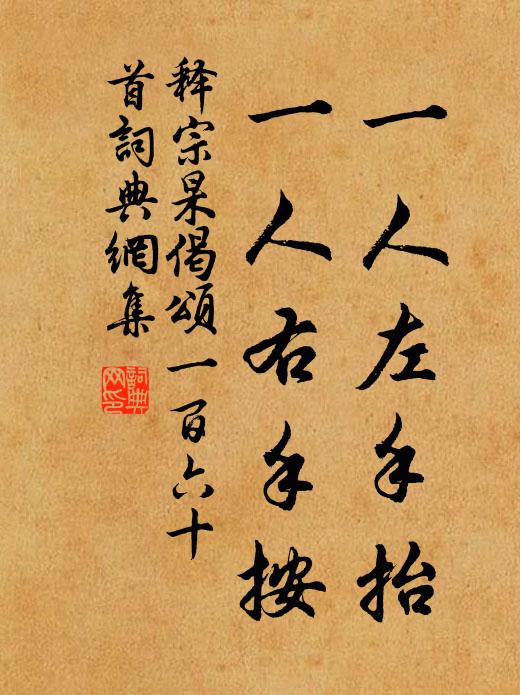 一人左手抬
一人右手按
释宗杲偈頌一百六十
首詞典網集
詞典网印